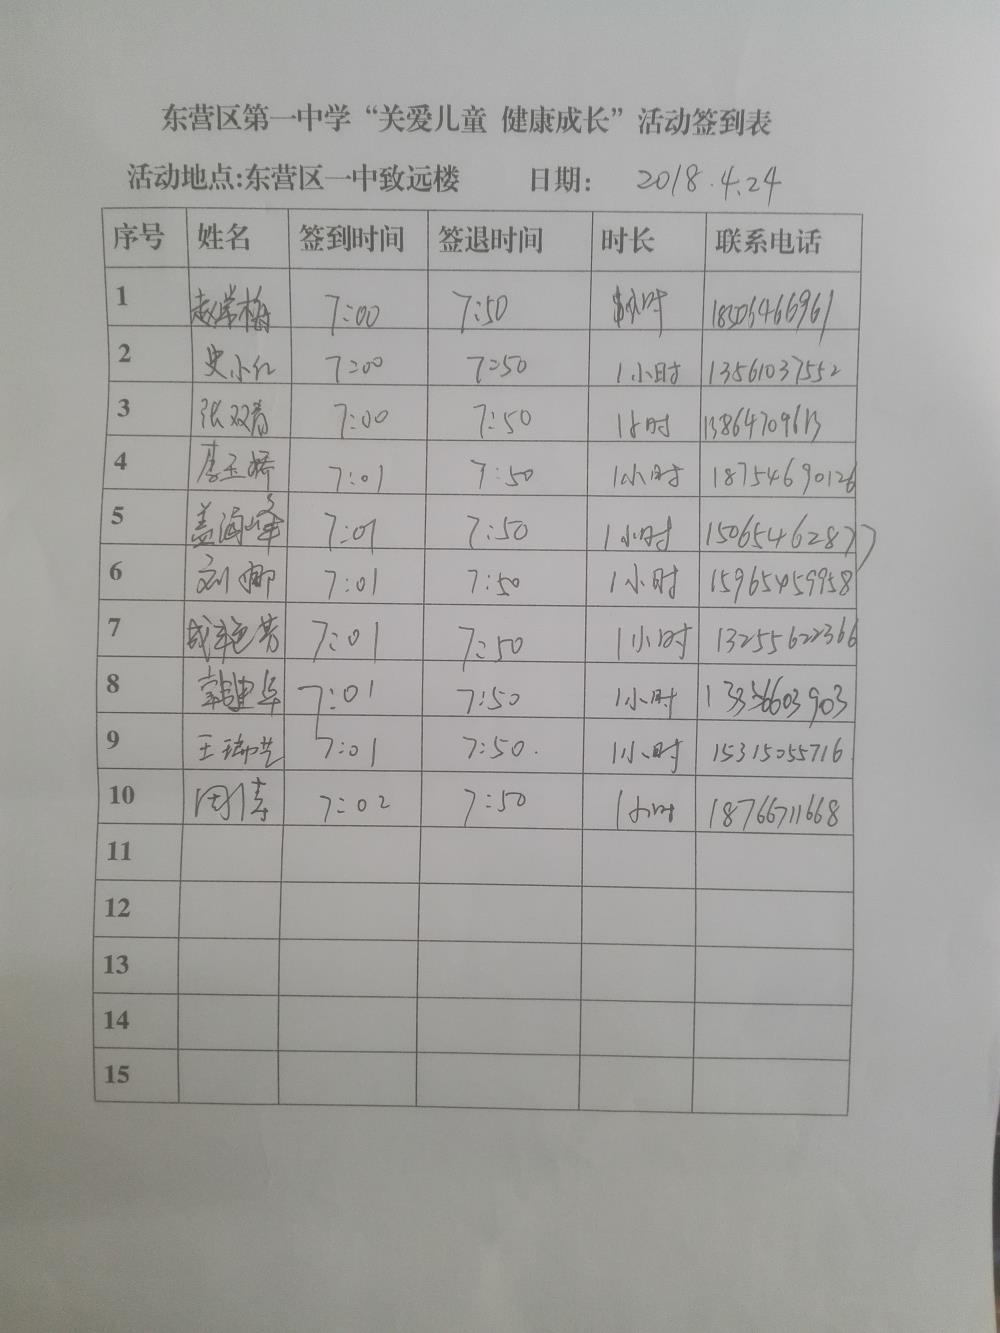 东营区第一中学“关爱儿童 健康成长”活动签到表
活动地点:东营区一中致远楼 日期: 2018.4.24
序号 姓名 签到时间 签退时间 时长 联系电话
1 赵常梅 7:00 7:50 小时 18506466961
2 史小红 7:00 7:50 1小时 13561037552
3 张双青 7:00 7:50 1小时 13864709613
4 李玉娇 7:01 7:50 1小时 18754690126
5 盖海峰 7:01 7:50 1小时 15065462877
6 刘娜 7:01 7:50 1小时 15965459958
7 7:01 7:50 1小时 13255622366
8 韩建华 7:01 7:50 1小时
9 王瑞芝 7:01 7:50. 1小时 15315055716
10 田倩 7:02 7:50 1小时 18766711668
11
12
13
14
15